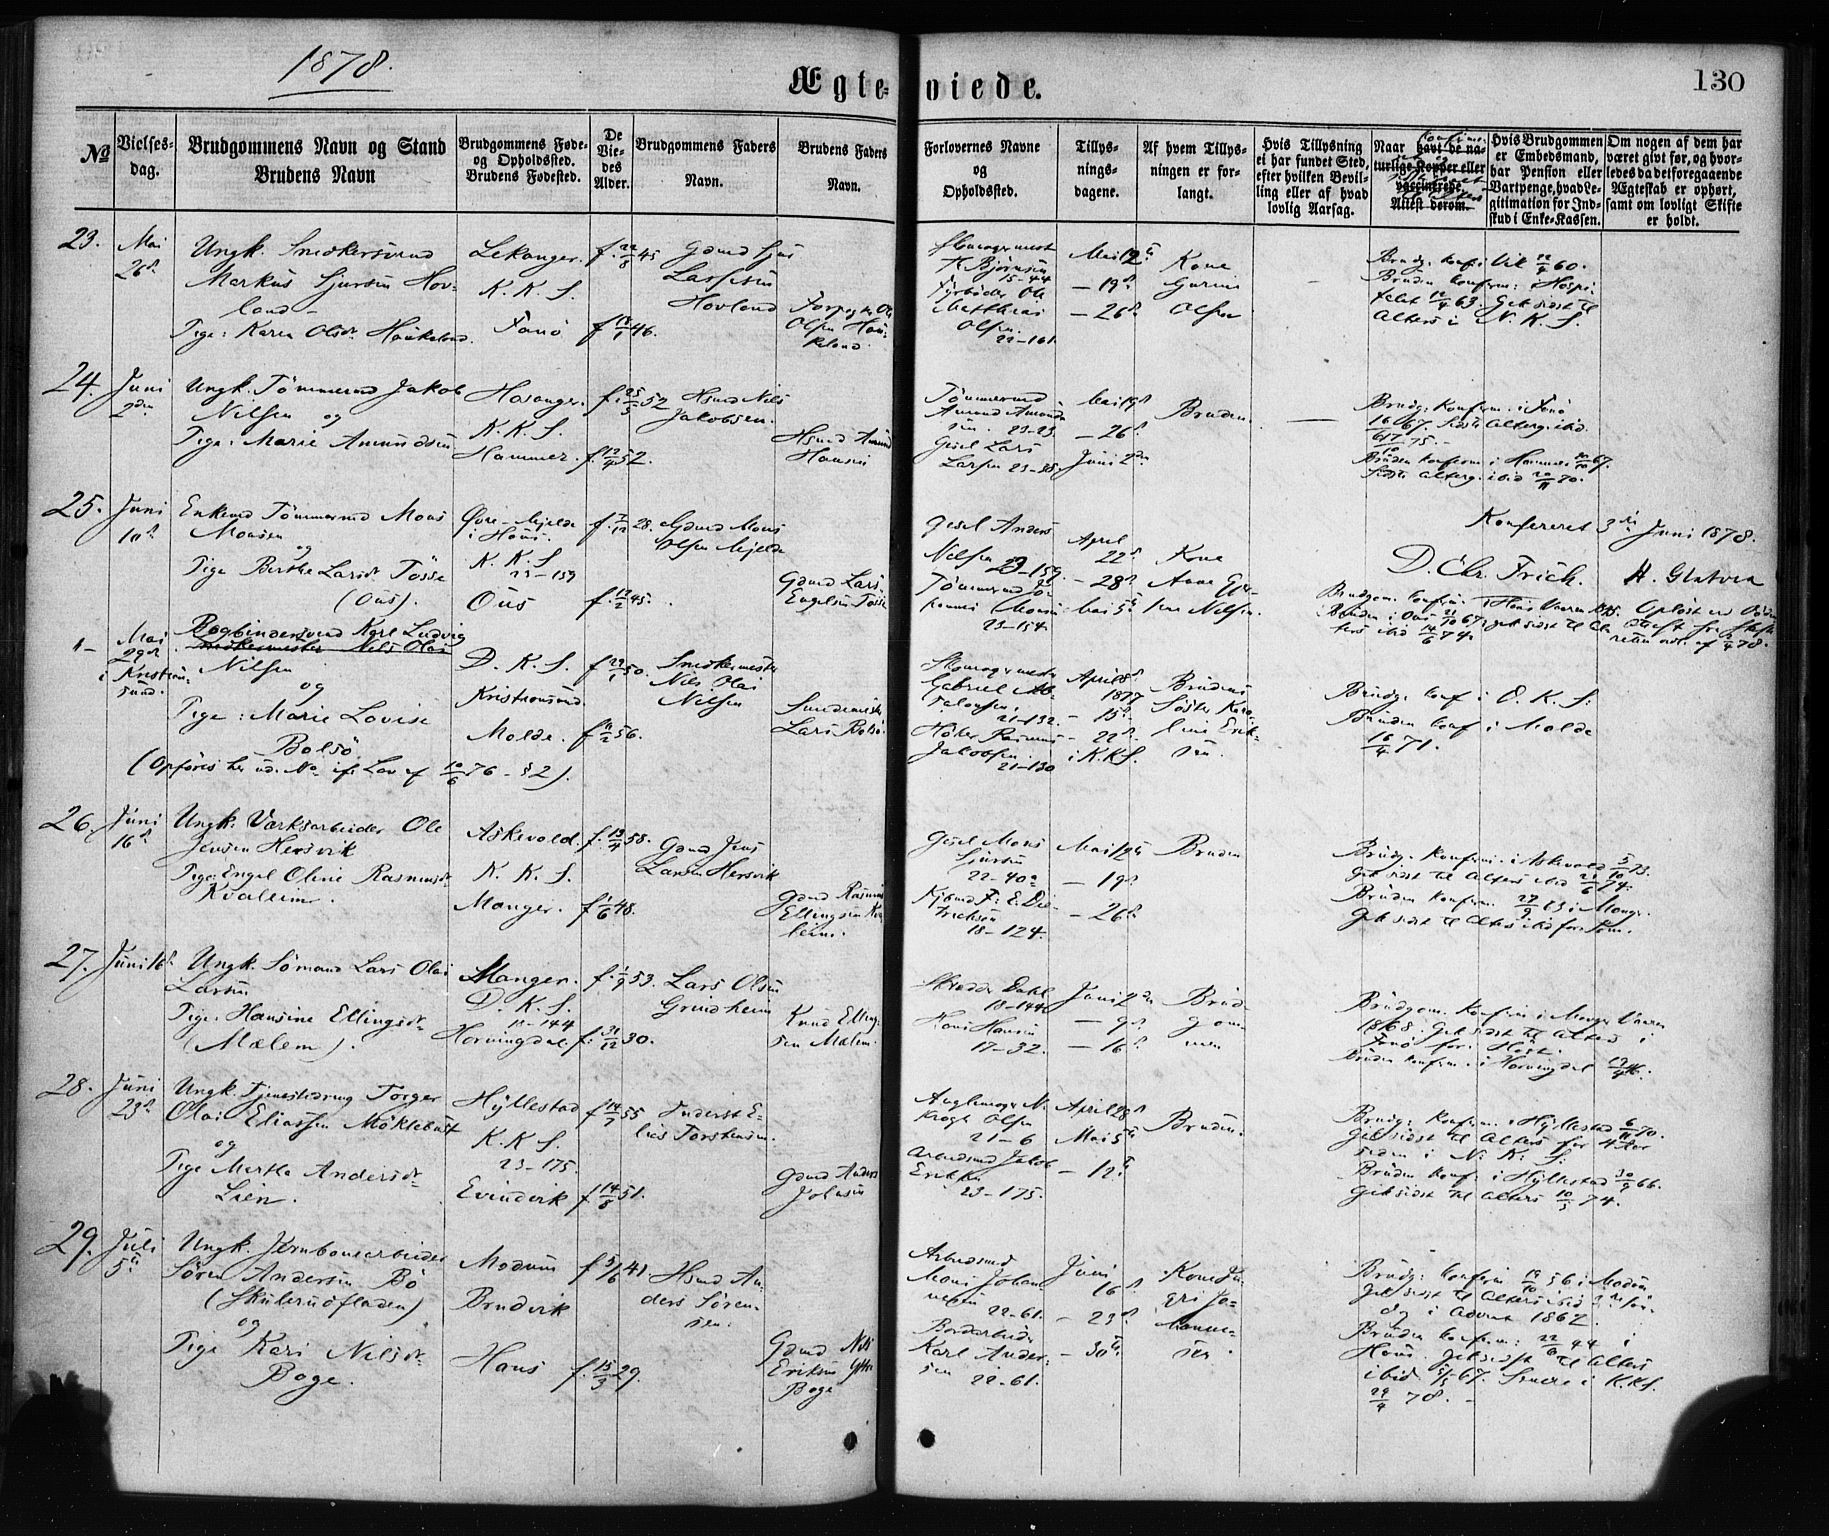 1878.
Ægte-viede.
130
No
Vielses-
dag.
Brudgommens Navn og Stand
Brudens Navn
Brudgommens Føde-
og Opholdssted.
Brudens Fødested.
De
Vie-
des
Alder.
Brudgommens Faders
Navn.
Brudens Faders
Navn.
Forlovernes Navne
og
Opholdssted.
Tillys-
nings-
dagene.
Af hvem Tillys-
ningen er for-
langt.
Hvis Tillysning
ei har fundet Sted,
efter hvilken Bevil-
ling eller af hvad
lovlig Aarsag.
Naar havt de na-
turlige Kopper eller
vaccinerede.
Attest derom.
Hvis Brudgommen
er Embedsmand,
har Pension eller
Vartpenge, hvad Le-
gitimation for Ind-
skud i Enke-Kassen.
Om nogen af dem har
været givt før, og hvor-
ledes da det foregaaende
Ægteskab er ophørt,
samt om lovligt Skifte
er holdt.
23.
Mai
26d
Ungk. Snedkersvend
Markus Sjursen Hov-
land
Pige: Karen Olsdr Haukeland.
Lekanger.
K. K. S.
Fanø
f. 22/8 45
46.
Gdmd Sjur
Lassesen
Hovland
Olsen Hau-
keland.
K. Bjørnsen
15-44
Fyrbøder Ole
Matthias
Olsen
22-161
Mai 12te
- 19d
- 26d
Kone
Gurine
Olsen
Brudg. konf. i Vik 60.
Bruden konfirm: i Hospi-
talet 63. Gik sidst til
Alters i N. K. S.
24.
Juni
2den
Ungk. Tømmermd Jakob
Nilsen og
Pige: Marie Amundsen
Hosanger.
K. K. S.
Hammer.
f. 25/5 52
f. 12/4 52.
Hsmd Nils
Jakobsen.
Hsmd Amund
Hansen
Tømmermd
Amund Amund-
sen. 23-23
Gesel Lars
Larsen 23-35
Mai 19d
- 26d
Juni 2den
Bruden
Brudg. konfirm. i Fanø
16/6 67. Sidste Alterg. ibid.
75.-
Bruden konfirm. i Hammer 67.
Sidste Alterg. ibid 20/11 70.
25.
Juni
10d
Enkemd Tømmermd Mons
Monsen
og
Pige Berthe Larsdr Tøsse
(Ous).
Øvre-Mjelde
i Hous.
K. K. S.
23-159
Ous
f. 7/12 28.
f. 12/2 45.
Gdmd Mons
Olsen Mjelde
Gdmd Lars
Engelsen Tøsse
Gesel Anders
Nilsen 23-159.
Tømmermd Jo-
hannes Monsen
23-154.
April
22d
- 28d
Mai 5te
Kone
Anne Gur-
ine Nilsen.
Konfereret 3die Juni 1878.
D. Chr. Frich.
H. Glatved
Bruden i Ous 67, gik sidst til Al-
ters ibid 14/6 74.
"-
Mai
29d
i Kristian-
sund.
Bogbindersvend Karl Ludvig
Snedkermester Nils Olai
Nilsen
og
Pige: Marie Lovise
Bolsø
(Opføres her ud. No ifl. Lov af 10/6 76 - § 2).
D. K. S.
Kristiansund
Molde.
f. 29/1 50.
56.
Snedkermester
Nils Olai
Nilsen
Lars Bolsø.
Gabriel Ab-
salonsen.
21-132
Høker Rasmus
Jakobsen
21-130
April 8d
1877
- 15d
- 22d
i K.K.S.
Brudens
Søster Karo-
line Erik-
sen.
Brudg. konf. i D. K. S.
Bruden konf. i Molde
16/4 71.
26.
Juni
16d
Ungk. Værksarbeider Ole
Jensen Hersvik
Pige: Engel Oline Rasmusdr
Kvalem.
Askevold.
K. K. S.
Manger.
f. 13/4 58.
f. 1/6 48.
Gdmd Jens
Larsen Hersvik
Gdmd Rasmus
Ellingsen Kva-
lem.
Gesel Mons
Sjursen
22-40a
F: E. Die-
trichsen
18-124.
Mai 12te
- 19d
- 26d
Bruden
Brudg. konfirm. i Askevold 5/10 73.
Gik sidst til Alters ibid 21/6 74.
Bruden konfirm. 27/9 63 i Manger.
Gik sidst til Alters ibid for. Som.
27.
Juni 16d
Ungk. Sømand Lars Olai
Larsen
Pige: Hansine Ellingsdr
(Mælem).
Manger.
D. K. S.
18-144
Hornindal
f. 1/9 53.
f. 31/12 30.
Lars Olsen
Grindheim
Knud Elling-
sen Mælem.
Skrædder Dahl
18-144
Hans Hansen
17-32.
Juni 2den
- 9d
- 16d
Brud-
gom-
men
Brudgom. konfirm. i Manger Vaaren
1868. Gik sidst til Alters i
Fanø forr. Høst.
Bruden konfirm. i Hornindal 46.
28.
Juni
23d
Ungk. Tjenestedreng Torger
Olai Eliassen Møklebust
og
Pige Marta Andersdr
Lien.
Hyllestad
K. K. S.
23-175.
Evindvik
f. 14/7 55
f. 14/8 51.
Inderst E-
lias Torstensen.
Gdmd Anders
Johnsen
Krogh Olsen
21-6
Arbeidsmd Jakob
Eriksen
23-175.
April 28d
Mai 5te
- 12te
Bruden.
Brudg. konfirm. i Hyllestad 6/11 70.
Gik sidst til Alters for 4 Aar
siden i N. K. S.
Bruden konf. i Hyllestad 30/9 66.
Gik sidst til Alters 10/5 74.
29.
Juli
5te
Ungk. Jernbanearbeider
Søren Andersen Bø
(Skulerudfladen)
og
Pige Kari Nilsdr
Boge.
Modum
Brudvik
Hous
f 5/6 41
f. 15/3 29.
Hsmd An-
ders Søren-
sen.
Gdmd Nils
Eriksen Yttre
Boge
Arbeidsmd
Mons Johan-
nesen
22-61.
Bordarbeider
Karl Ander-
sen
22-61.
Juni
16d
- 23d
- 30te
Kone In-
geri Jo-
hanne-
sen.
Brudg: konfirm 19/10 56 i Modum
Gik sidst til Alters ibid
og i Advent 1867.
Bruden konfirm: 44 i
Hous. Gik sidst til Alters
ibid 67. Senere i K.K.S.
29/4 78. -